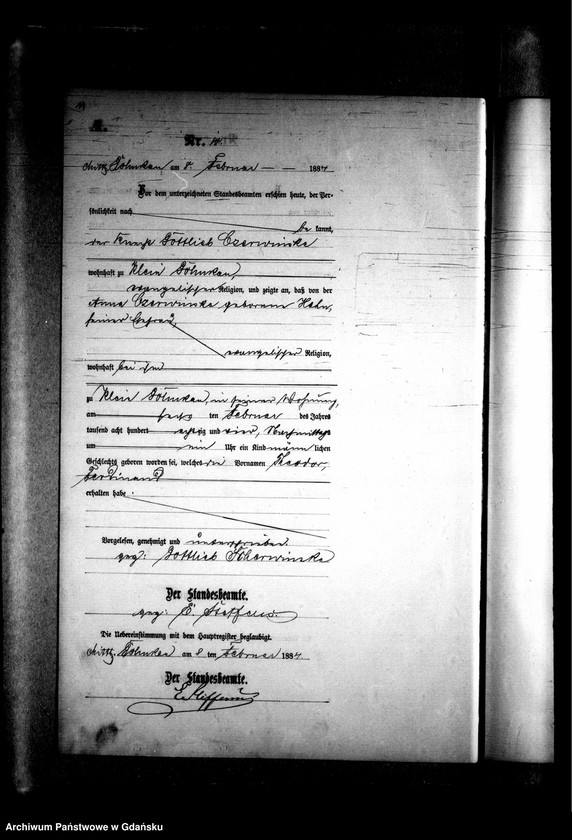 A.
Nr. 14.
Mittl. Golmkau am 8. Februar 1884
Vor dem unterzeichneten Standesbeamten erschien heute, der Per-
sönlichkeit nach
be kannt,
der Knecht Gottlieb Czerwinske
wohnhaft zu Klein Golmkau,
evangelischer Religion, und zeigte an, daß von der
Anna Czerwinske geborene Hahn,
seiner Ehefrau,
evangelischer Religion,
wohnhaft bei ihm
zu Klein Golmkau, in seiner Wohnung,
am sechs ten Februar des Jahres
tausend acht hundert achtzig und vier, Nachmittags
um ein Uhr ein Kind männ lichen
Geschlechts geboren worden sei, welches die Vornamen Theodor,
Ferdinand
erhalten habe.
Vorgelesen, genehmigt und unterschrieben
gez: Gottlieb Scherwinske
Der Standesbeamte.
gez: E. Steffens
Die Uebereinstimmung mit dem Hauptregister beglaubigt.
Mittl. Golmkau am 8 ten Februar 1884.
Der Standesbeamte.
E. Steffens
Archiwum Państwowe w Gdańsku